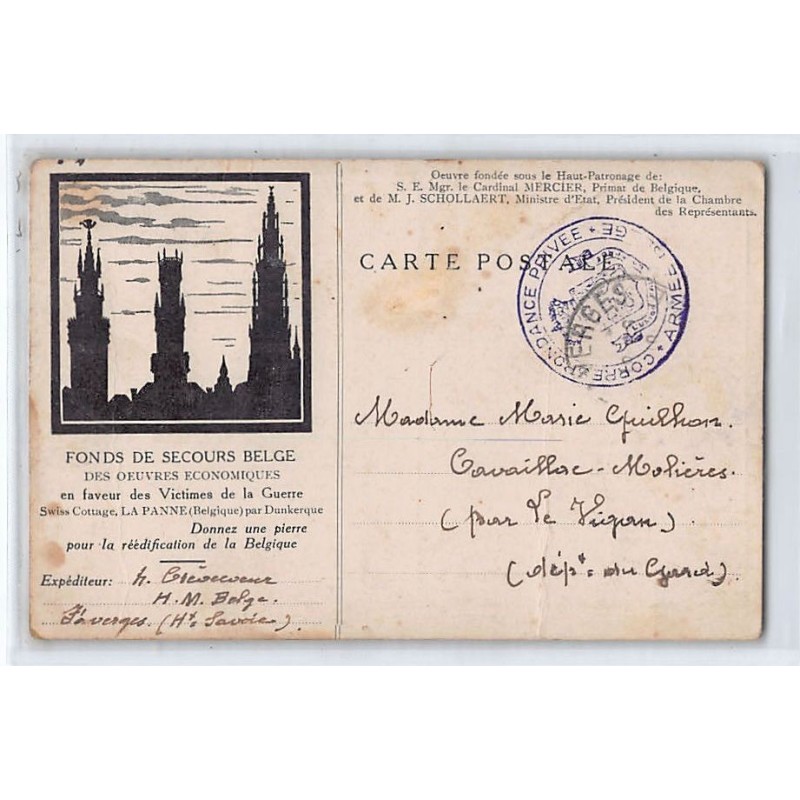 Oeuvre fondée sous le Haut-Patronage de:
S. E. Mgr. le Cardinal MERCIER, Primat de Belgique,
et de M. J. SCHOLLAERT, Ministre d'Etat, Président de la Chambre
des Représentants.
CARTE POSTALE
CORRESPONDANCE PRIVÉE
ARMÉE
ERGES
Madame Marie Guilhon.
Cavaillac-Molières.
(par Le Vigan)
(dépt. du Gard)
FONDS DE SECOURS BELGE
DES OEUVRES ECONOMIQUES
en faveur des Victimes de la Guerre
Swiss Cottage, LA PANNE (Belgique) par Dunkerque
Donnez une pierre
pour la réédification de la Belgique
Expéditeur: h.
H. M. Belge.
Faverges. (Hte Savoie)